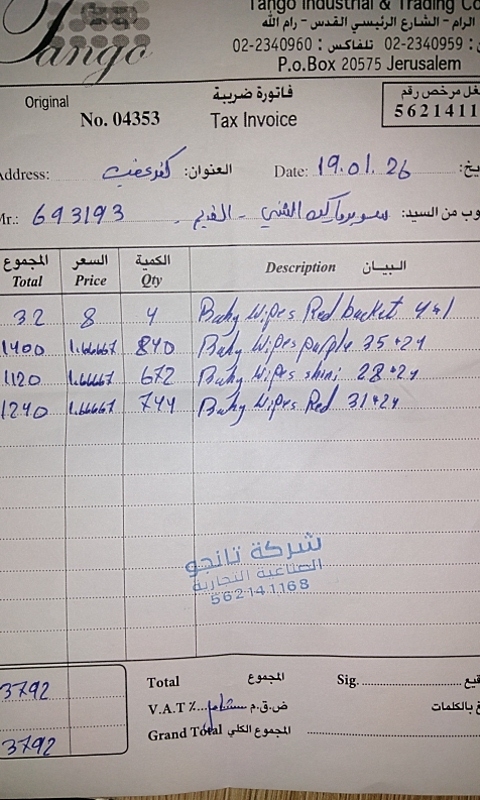 Tango
Tango Industrial & Trading Co
الرام - الشارع الرئيسي القدس - رام الله
02-2340960 : تلفاكس 02-2340959 :
P.o.Box 20575 Jerusalem
Original
فاتورة ضريبة
No. 04353
Tax Invoice
مشتغل مرخص رقم
5621411
Address: كفر عقب العنوان: Date: 19.01.26
Mr.: 693193 سوبرماركت الغني - القديم المطلوب من السيد:
المجموع السعر الكمية
Total Price Qty Description البيان
32 8 4 Baby Wipes Red bucket 4*1
1400 1.66667 840 Baby Wipes purple 35*24
1120 1.66667 672 Baby Wipes shini 28*24
1240 1.66667 744 Baby Wipes Red 31*24
شركة تانجو
الصناعية التجارية
562141168
3792 Total المجموع Sig.
V.A.T٪ شامل ض.ق.م بالكلمات
3792 Grand Total المجموع الكلي